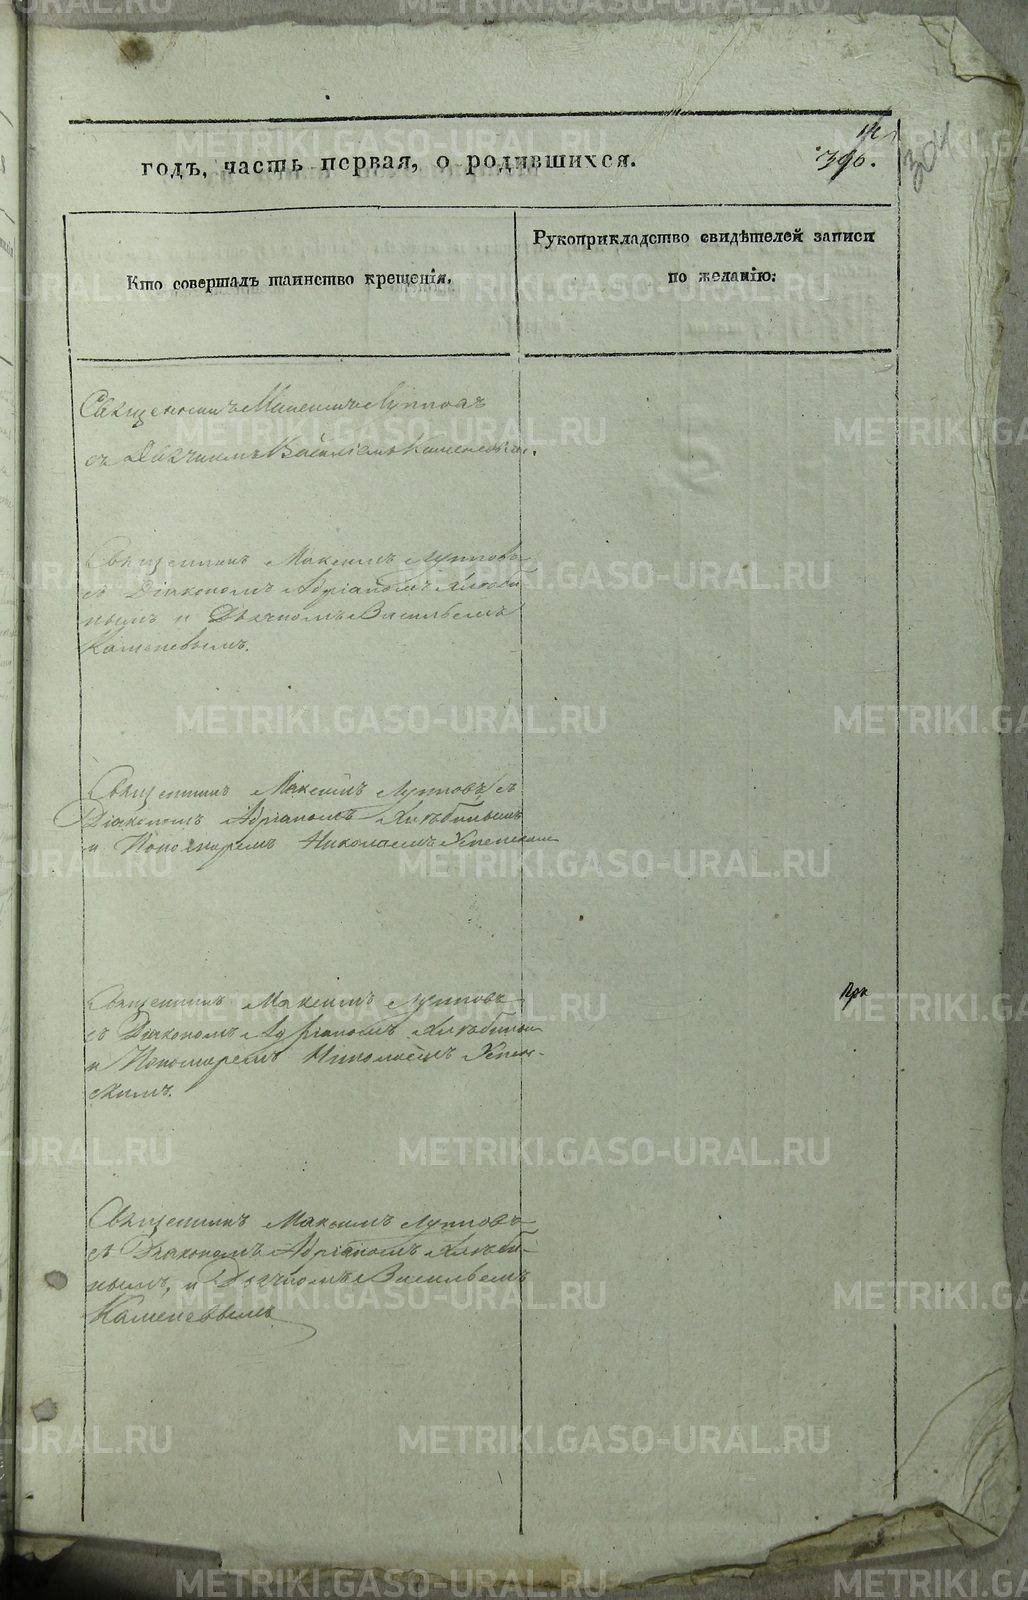 годъ, часть первая, о родившихся.
396.
304
Кто совершалъ таинство крещенія.
Рукоприкладство свидѣтелей записи
по желанію:
Священникъ Максимъ Лупповъ
съ Дьячкомъ Василіемъ Каменевым.
Священникъ Максимъ Лупповъ
съ Діакономъ Адріаномъ Хлѣби-
нымъ и Дьячкомъ Васильемъ
Каменевымъ.
Священникъ Максимъ Лупповъ съ
Діакономъ Адріаномъ Хлѣбинымъ
и Пономаремъ Николаемъ Успенским
Священникъ Максимъ Лупповъ
съ Діакономъ Адріаномъ Хлѣбиным
и Пономаремъ Николаемъ Успен-
скимъ.
При
Священникъ Максимъ Лупповъ
съ Діакономъ Адріаномъ Хлѣби-
нымъ, и Дьячкомъ Васильемъ
Каменевымъ
METRIKI.GASO-URAL.RU